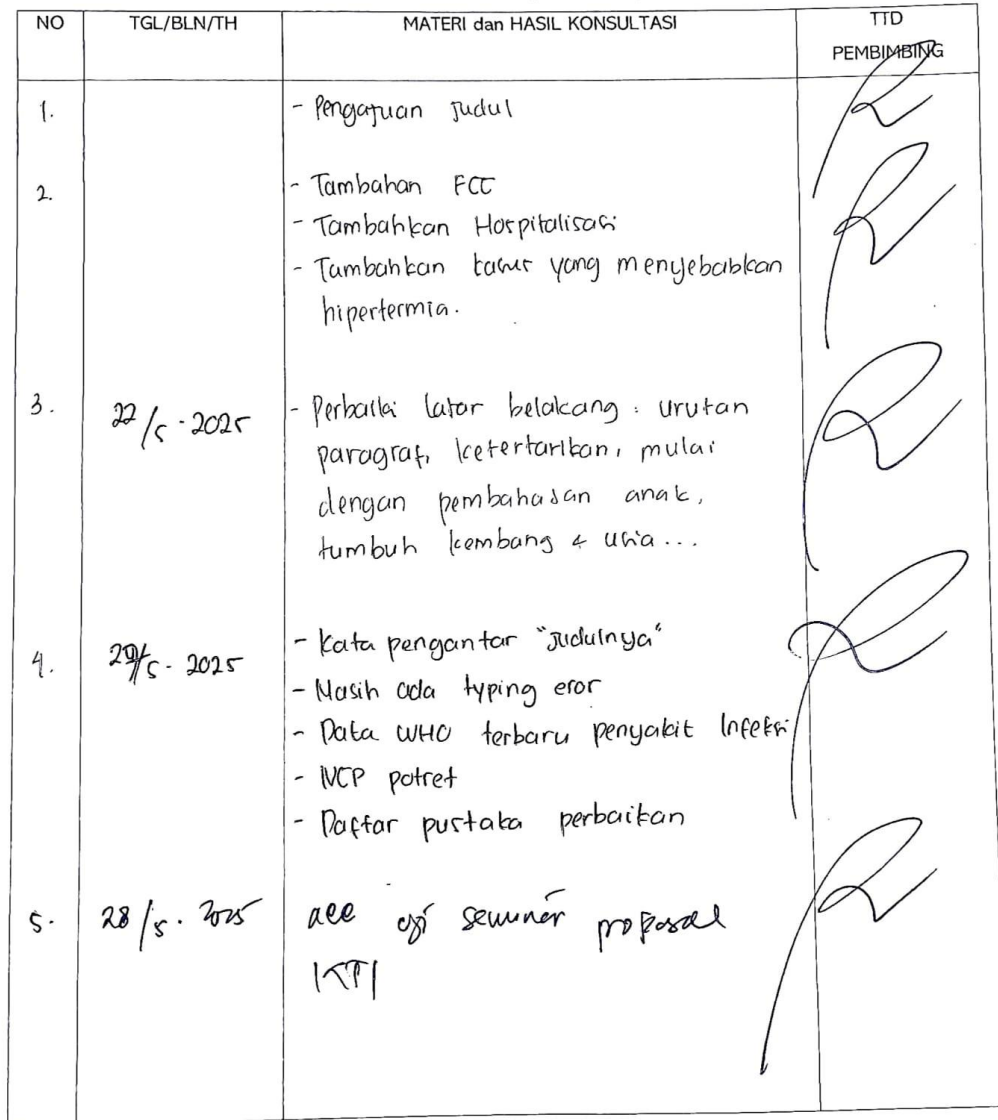 NO TGL/BLN/TH MATERI dan HASIL KONSULTASI TTD
PEMBIMBING
1. - Pengajuan Judul
2. - Tambahan FCC
- Tambahkan Hospitalisasi
- Tambahkan kasus yang menyebabkan
hipertermia.
3. 22/5 - 2025 - Perbaiki latar belakang : urutan
paragraf, ketertarikan, mulai
dengan pembahasan anak,
tumbuh kembang & usia...
4. /5 - 2025 - Kata pengantar "Judulnya"
- Masih ada typing eror
- Data WHO terbaru penyakit Infeksi
- NCP potret
- Daftar pustaka perbaikan
5. 28/5 - 2025 acc seminar proposal
KTI